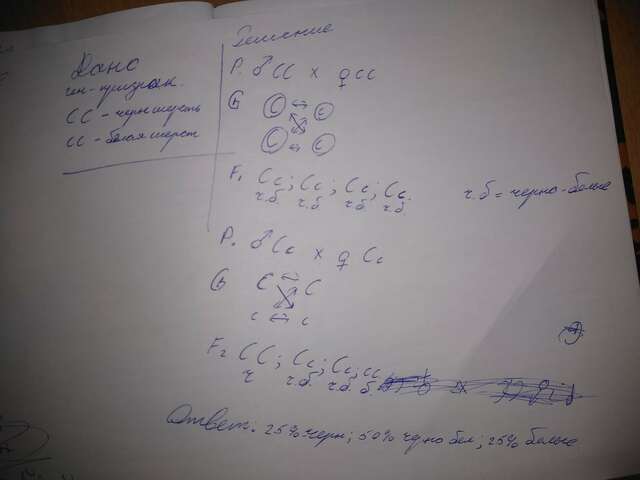 Дано
ген-признак.
CC - черн шерсть
cc - белая шерст
Решение
P. ♂CC x ♀cc
G C ↔ c
C ↔ c
F₁ Cc; Cc; Cc; Cc.
ч.б. ч.б ч.б ч.б.
ч.б = черно-белые
P. ♂Cc x ♀Cc
G C ↔ C
c ↔ c
F₂ CC; Cc; Cc; cc
ч ч.б. ч.б. б.
Ответ: 25% черн; 50% черно бел; 25% белые